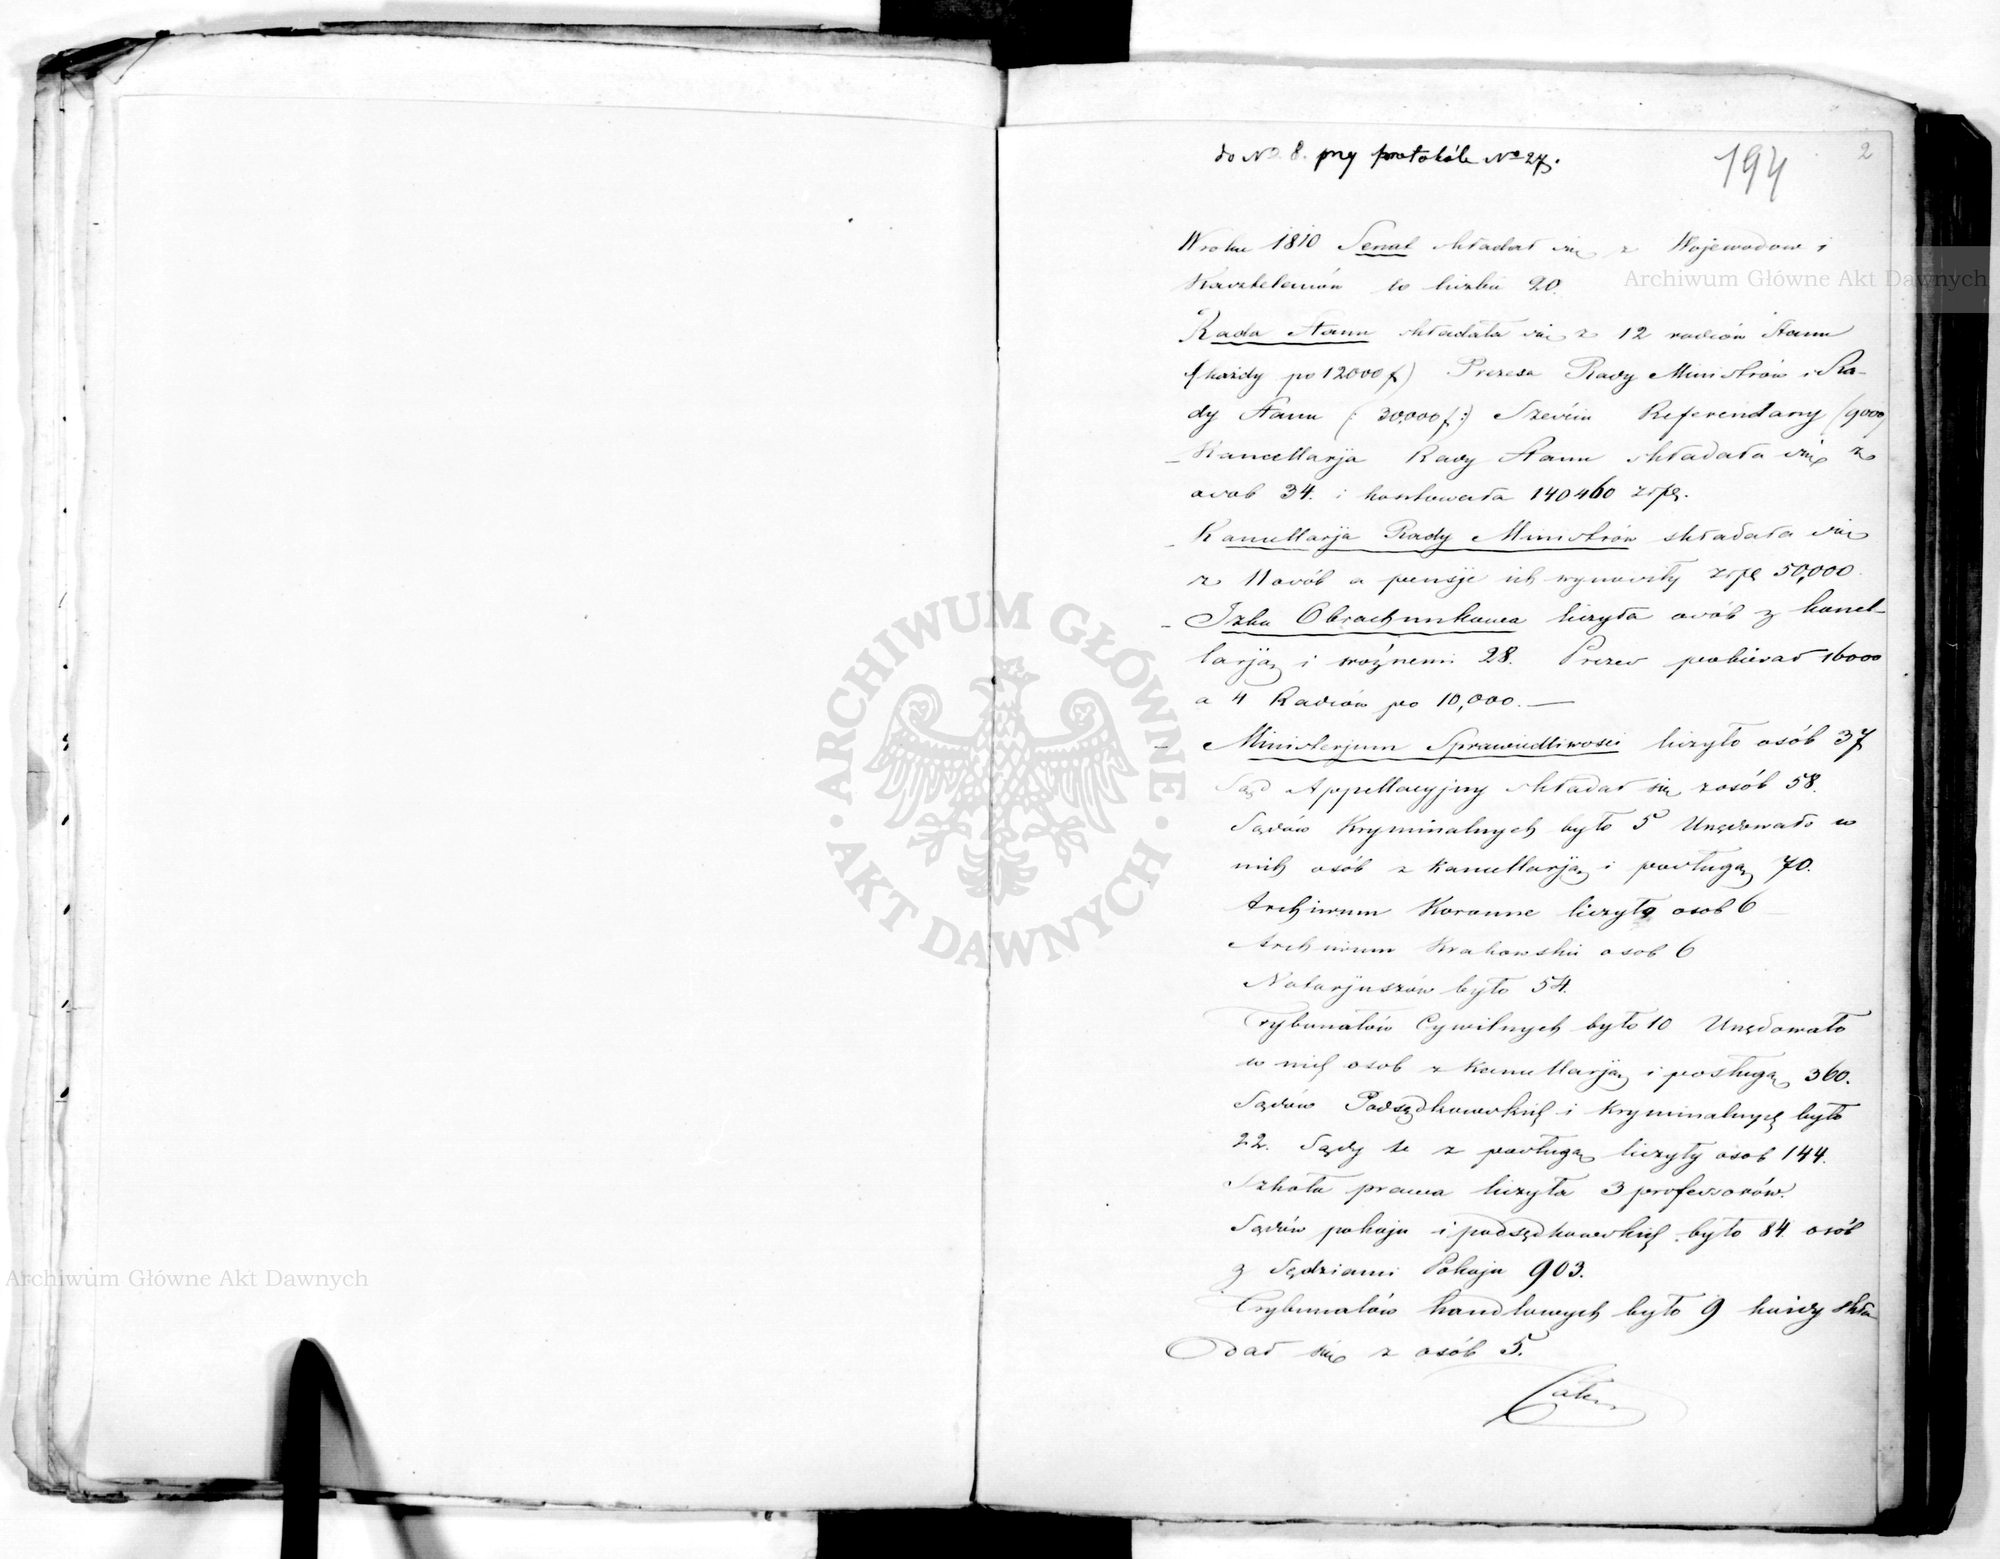 do No 8. przy protokóle No 27.
194
2
W roku 1810 Senat składał się z Wojewodow i
Kasztelanów w liczbie 20.
Rada Stanu składała się z 12 radców Stanu
(każdy po 12000 f) Prezesa Rady Ministrów i Ra-
dy Stanu (: 30,000 f :) Sześciu Referendarzy (9000
- Kancellarja Rady Stanu składała się z
osob 34. i kosztowała 140460 złp.
- Kancellarja Rady Ministrów składała się
z 11 osób a pensje ich wynosiły złp 50,000.
- Izba Obrachunkowa liczyła osób z kancel-
larją i woźnemi 28. Prezes pobierał 16000
a 4 Radców po 10,000. —
- Ministerjum Sprawiedliwosci liczyło osób 37
Sąd Appellacyjny składał się z osób 58.
Sądów Kryminalnych było 5 Urzędowało w
nich osób z kancellarją i posługą 70.
Archiwum Koronne liczyło osob 6
Archiwum Krakowskie osob 6
Notarjuszów było 54.
Trybunałów Cywilnych było 10 Urzędowało
w nich osob z kancellarją i posługą 360.
Sądów Podsędkowskich i Kryminalnych było
22. Sądy te z posługą liczyły osob 144.
Szkoła prawa liczyła 3 professorów.
Sądów pokoju i podsędkowskich było 84 osób
z Sędziami Pokoju 903.
Trybunałów handlowych było 9 każdy skła
dał się z osób 5.
Archiwum Główne Akt Dawnych
ARCHIWUM GŁÓWNE
AKT DAWNYCH
Archiwum Główne Akt Dawnych